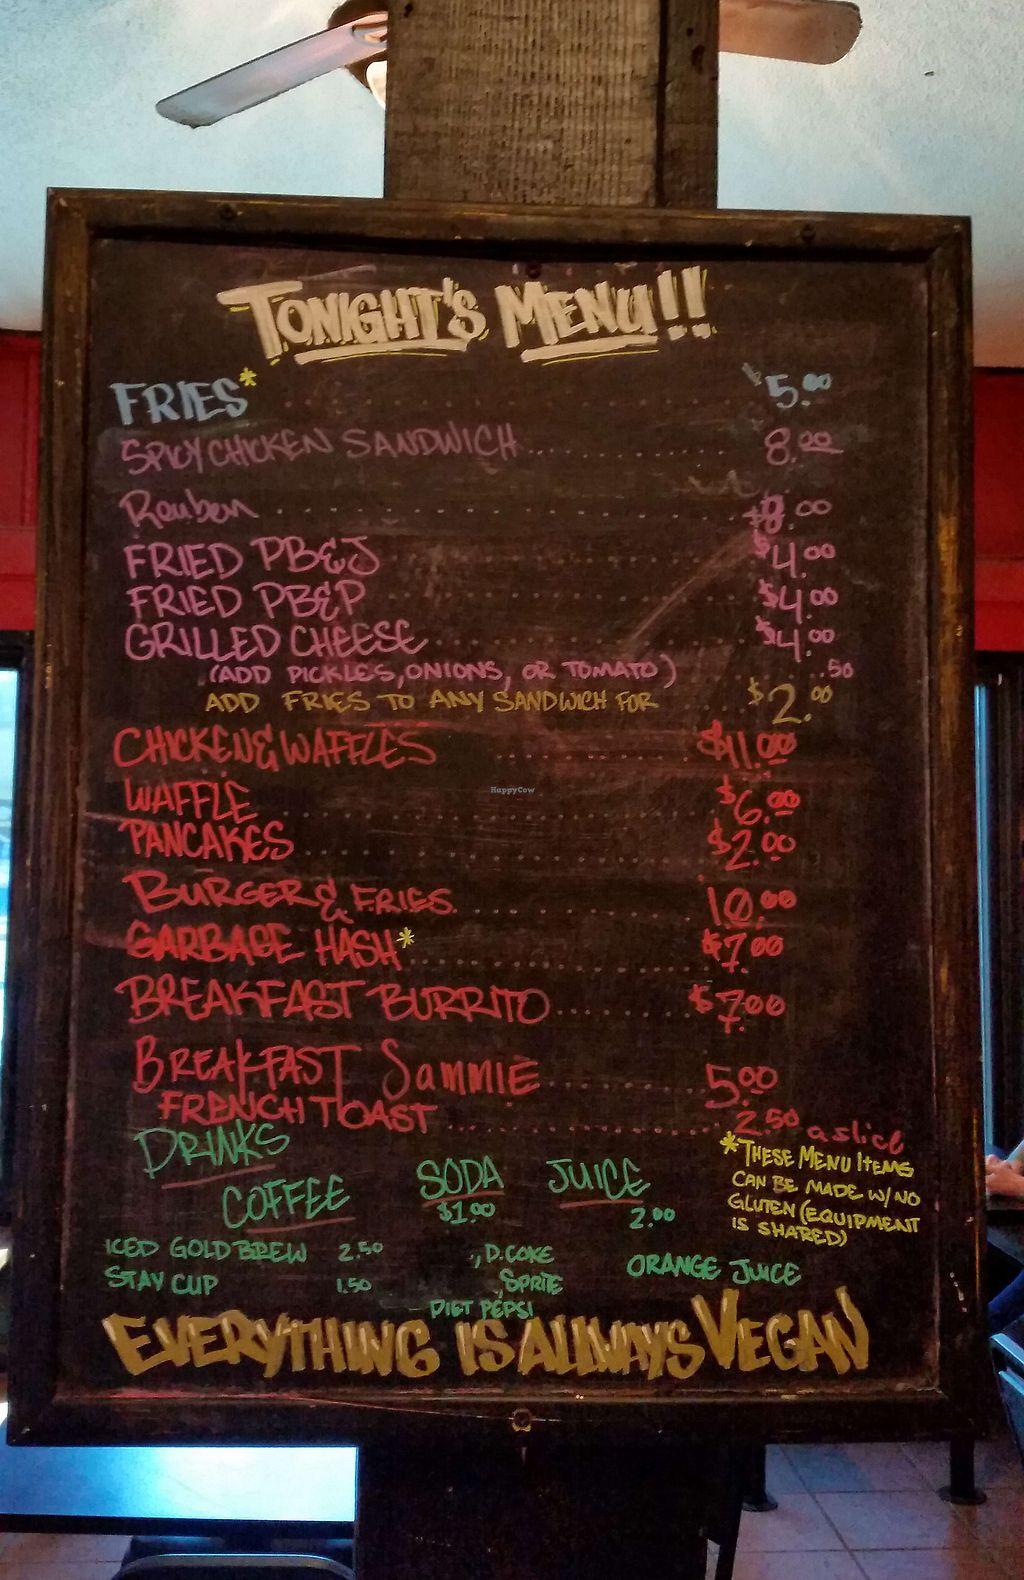 TONIGHT'S MENU!!
FRIES* $5.00
SPICY CHICKEN SANDWICH 8.00
Reuben $8.00
FRIED PB&J $4.00
FRIED PB&P $4.00
GRILLED CHEESE $4.00
(ADD PICKLES, ONIONS, OR TOMATO) .50
ADD FRIES TO ANY SANDWICH FOR $2.00
CHICKEN & WAFFLES $11.00
HappyCow
WAFFLE $6.00
PANCAKES $2.00
BURGER & FRIES 10.00
GARBAGE HASH* $7.00
BREAKFAST BURRITO $7.00
BREAKFAST SAMMIE 5.00
FRENCH TOAST 2.50 a slice
*THESE MENU ITEMS
CAN BE MADE W/NO
GLUTEN (EQUIPMENT
IS SHARED)
DRINKS
COFFEE SODA JUICE
$1.00 2.00
ICED GOLD BREW 2.50 , D.COKE ORANGE JUICE
STAY CUP 1.50 , SPRITE
DIET PEPSI
EVERYTHING IS ALLWAYS VEGAN